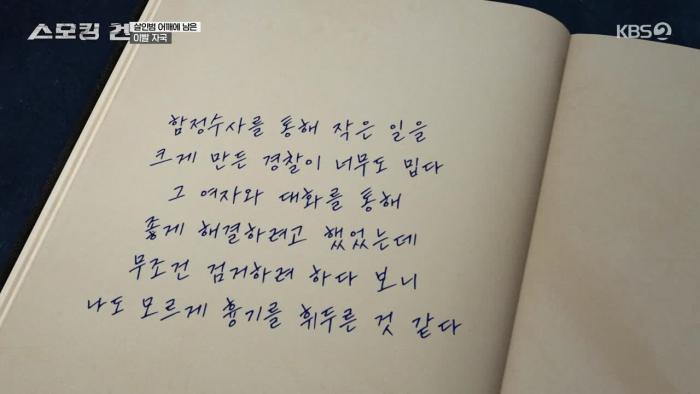 스모킹 건
살인범 어깨에 남은
이빨 자국
KBS2
함정수사를 통해 작은 일을
크게 만든 경찰이 너무도 밉다
그 여자와 대화를 통해
좋게 해결하려고 했었는데
무조건 검거하려 하다 보니
나도 모르게 흉기를 휘두른 것 같다